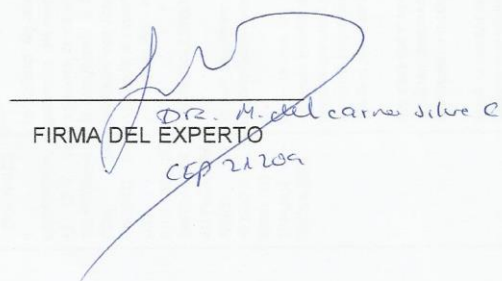 DR. M. del carmen Silva C
FIRMA DEL EXPERTO
CEP 21209